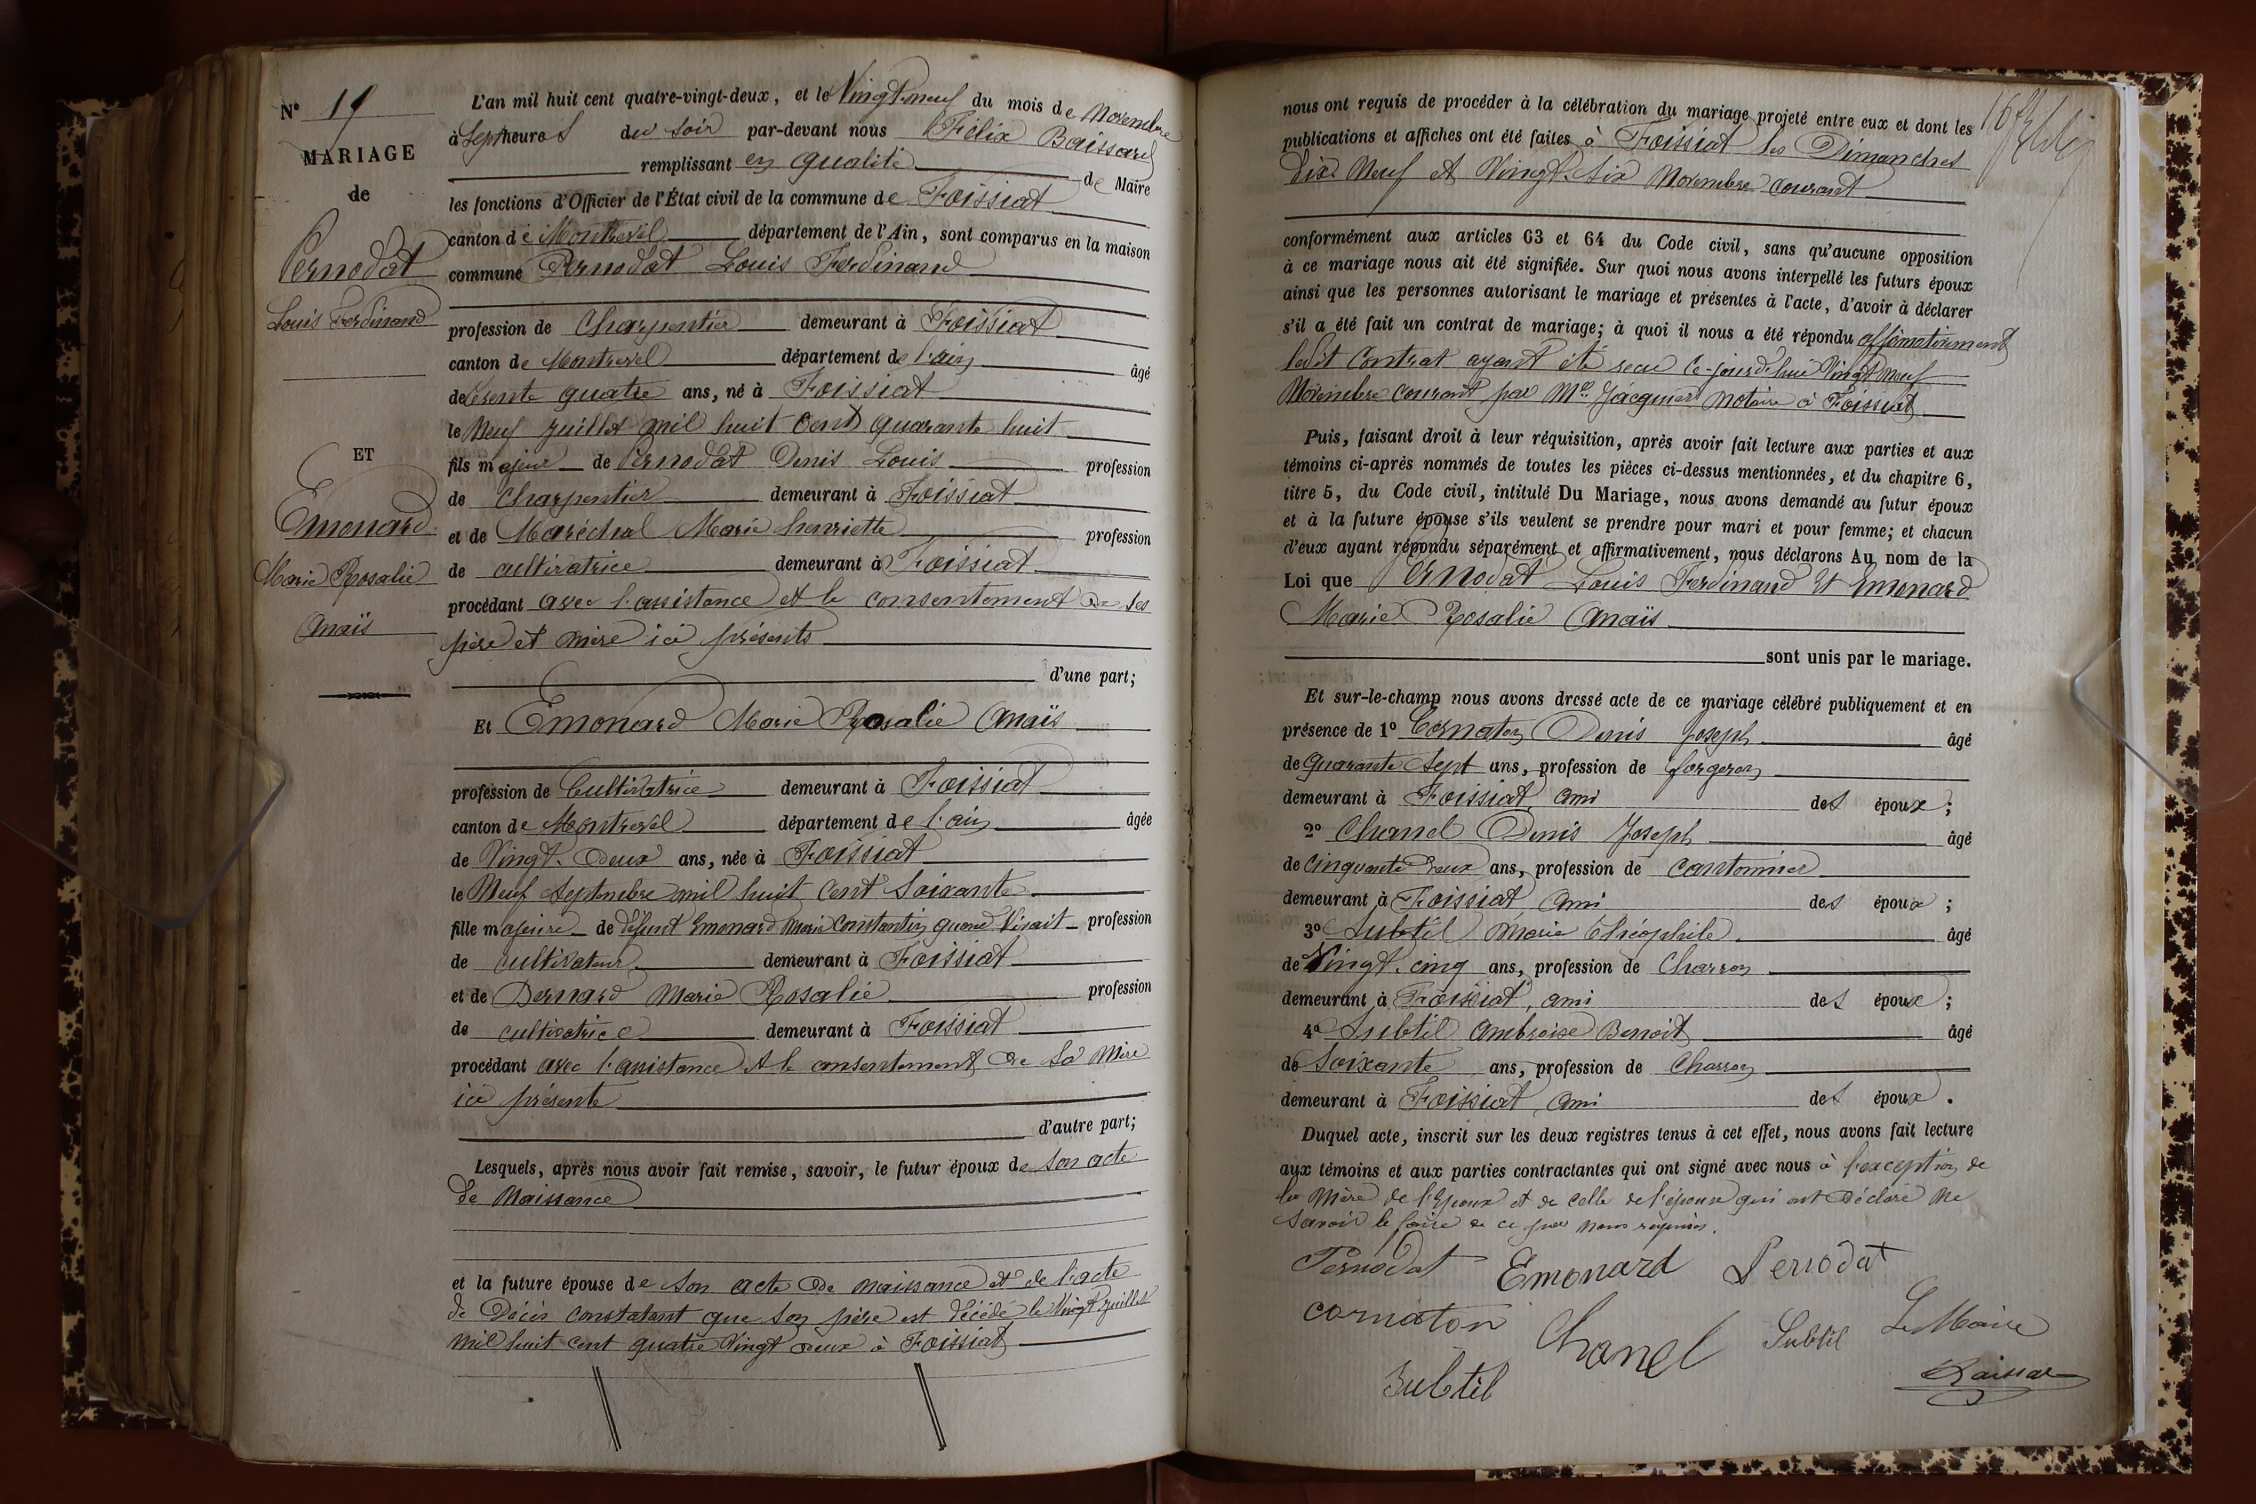 N° 19
MARIAGE
de
Pernodat
Louis Ferdinand
ET
Emonard
Marie Rosalie
Anaïs
L'an mil huit cent quatre-vingt-deux, et le Vingt-neuf du mois de Novembre
à Sept heures du soir par-devant nous Félix Boissard
remplissant en qualité de Maire
les fonctions d'Officier de l'État civil de la commune de Foissiat
canton de Montrevel département de l'Ain, sont comparus en la maison
commune Pernodat Louis Ferdinand
profession de Charpentier demeurant à Foissiat
canton de Montrevel département de l'ain âgé
de trente quatre ans, né à Foissiat
le Neuf juillet mil huit cent quarante huit
fils majeur de Pernodat Denis Louis profession
de charpentier demeurant à Foissiat
et de Maréchal Marie henriette profession
de cultivatrice demeurant à Foissiat
procédant avec l'assistance et le consentement de ses
père et mère ici présents
d'une part;
Et Emonard Marie Rosalie Anaïs
profession de Cultivatrice demeurant à Foissiat
canton de Montrevel département de l'ain âgée
de Vingt-Deux ans, née à Foissiat
le Neuf Septembre mil huit cent Soixante
fille majeure de défunt Emonard Marie Constantin quand Vivait profession
de cultivateur demeurant à Foissiat
et de Bernard Marie Rosalie profession
de cultivatrice demeurant à Foissiat
procédant avec l'assistance et le consentement de sa Mère
ici présente
d'autre part;
Lesquels, après nous avoir fait remise, savoir, le futur époux de son acte
de Naissance
et la future épouse de son acte de naissance et de l'acte
de Décès constatant que son père est décédé le Vingt juillet
mil huit cent quatre Vingt deux à Foissiat
nous ont requis de procéder à la célébration du mariage projeté entre eux et dont les
publications et affiches ont été faites à Foissiat les Dimanches
Dix Neuf et Vingt-Six Novembre courant
conformément aux articles 63 et 64 du Code civil, sans qu'aucune opposition
à ce mariage nous ait été signifiée. Sur quoi nous avons interpellé les futurs époux
ainsi que les personnes autorisant le mariage et présentes à l'acte, d'avoir à déclarer
s'il a été fait un contrat de mariage; à quoi il nous a été répondu affirmativement
ledit Contrat ayant été recu ce-jourd'hui Vingt neuf
Novembre courant par Me Jacquier notaire à Foissiat
Puis, faisant droit à leur réquisition, après avoir fait lecture aux parties et aux
témoins ci-après nommés de toutes les pièces ci-dessus mentionnées, et du chapitre 6,
titre 5, du Code civil, intitulé Du Mariage, nous avons demandé au futur époux
et à la future épouse s'ils veulent se prendre pour mari et pour femme; et chacun
d'eux ayant répondu séparément et affirmativement, nous déclarons Au nom de la
Loi que Pernodat Louis Ferdinand et Emonard
Marie Rosalie Anaïs
sont unis par le mariage.
Et sur-le-champ nous avons dressé acte de ce mariage célébré publiquement et en
présence de 1° Cornaton Denis Joseph âgé
de quarante Sept ans, profession de forgeron
demeurant à Foissiat, ami des époux;
2° Chanel Denis Joseph âgé
de cinquante deux ans, profession de cantonnier
demeurant à Foissiat ami des époux;
3° Subtil Marie Théophile âgé
de Vingt-cinq ans, profession de Charron
demeurant à Foissiat, ami des époux;
4° Subtil Ambroise Benoit âgé
de Soixante ans, profession de Charron
demeurant à Foissiat, ami des époux.
Duquel acte, inscrit sur les deux registres tenus à cet effet, nous avons fait lecture
aux témoins et aux parties contractantes qui ont signé avec nous à l'exception de
la Mère de l'Epoux et de celle de l'épouse qui ont Déclaré Ne
Savoir le faire de ce par nous requises.
Pernodat Emonard Pernodat
cornaton Chanel Subtil Le Maire
Subtil Boissard